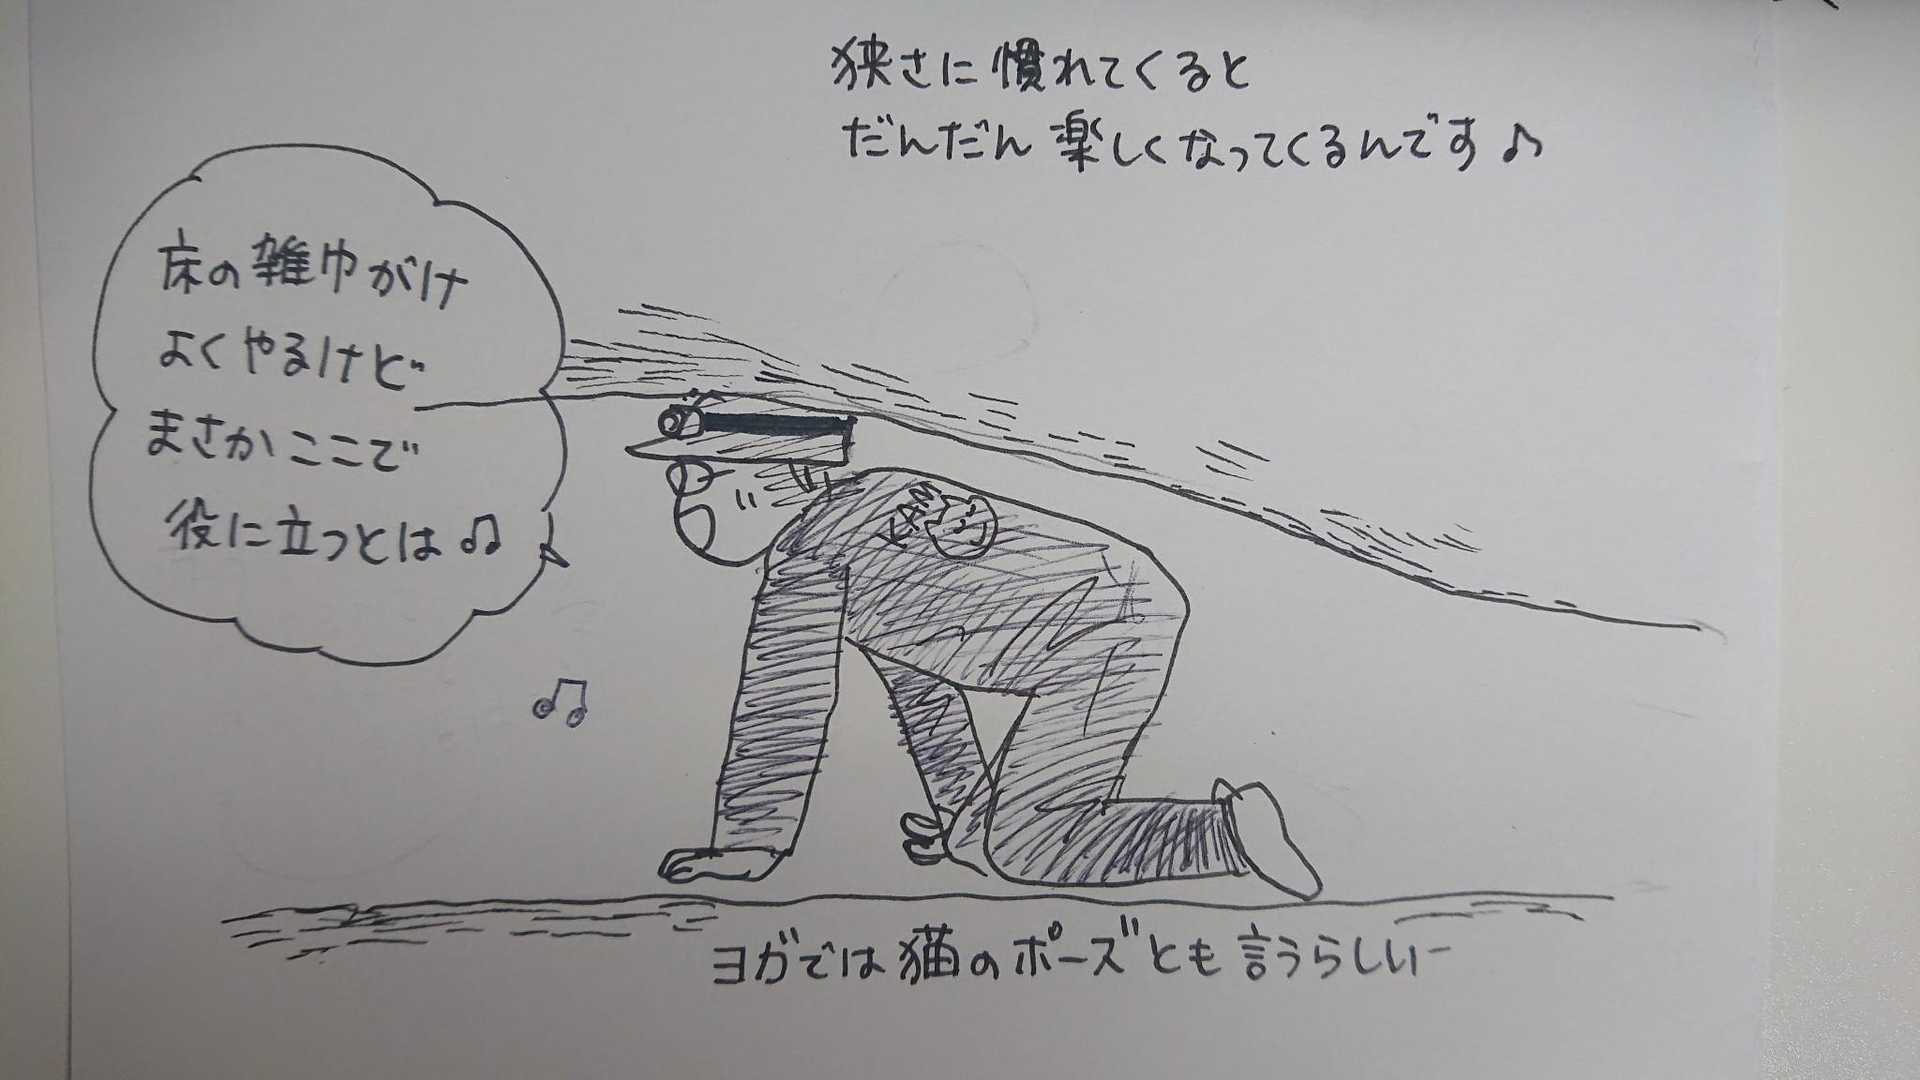 狭さに慣れてくると
だんだん楽しくなってくるんです♪
床の雑巾がけ
よくやるけど
まさかここで
役に立つとは♫
KAM
ヨガでは猫のポーズとも言うらしいー